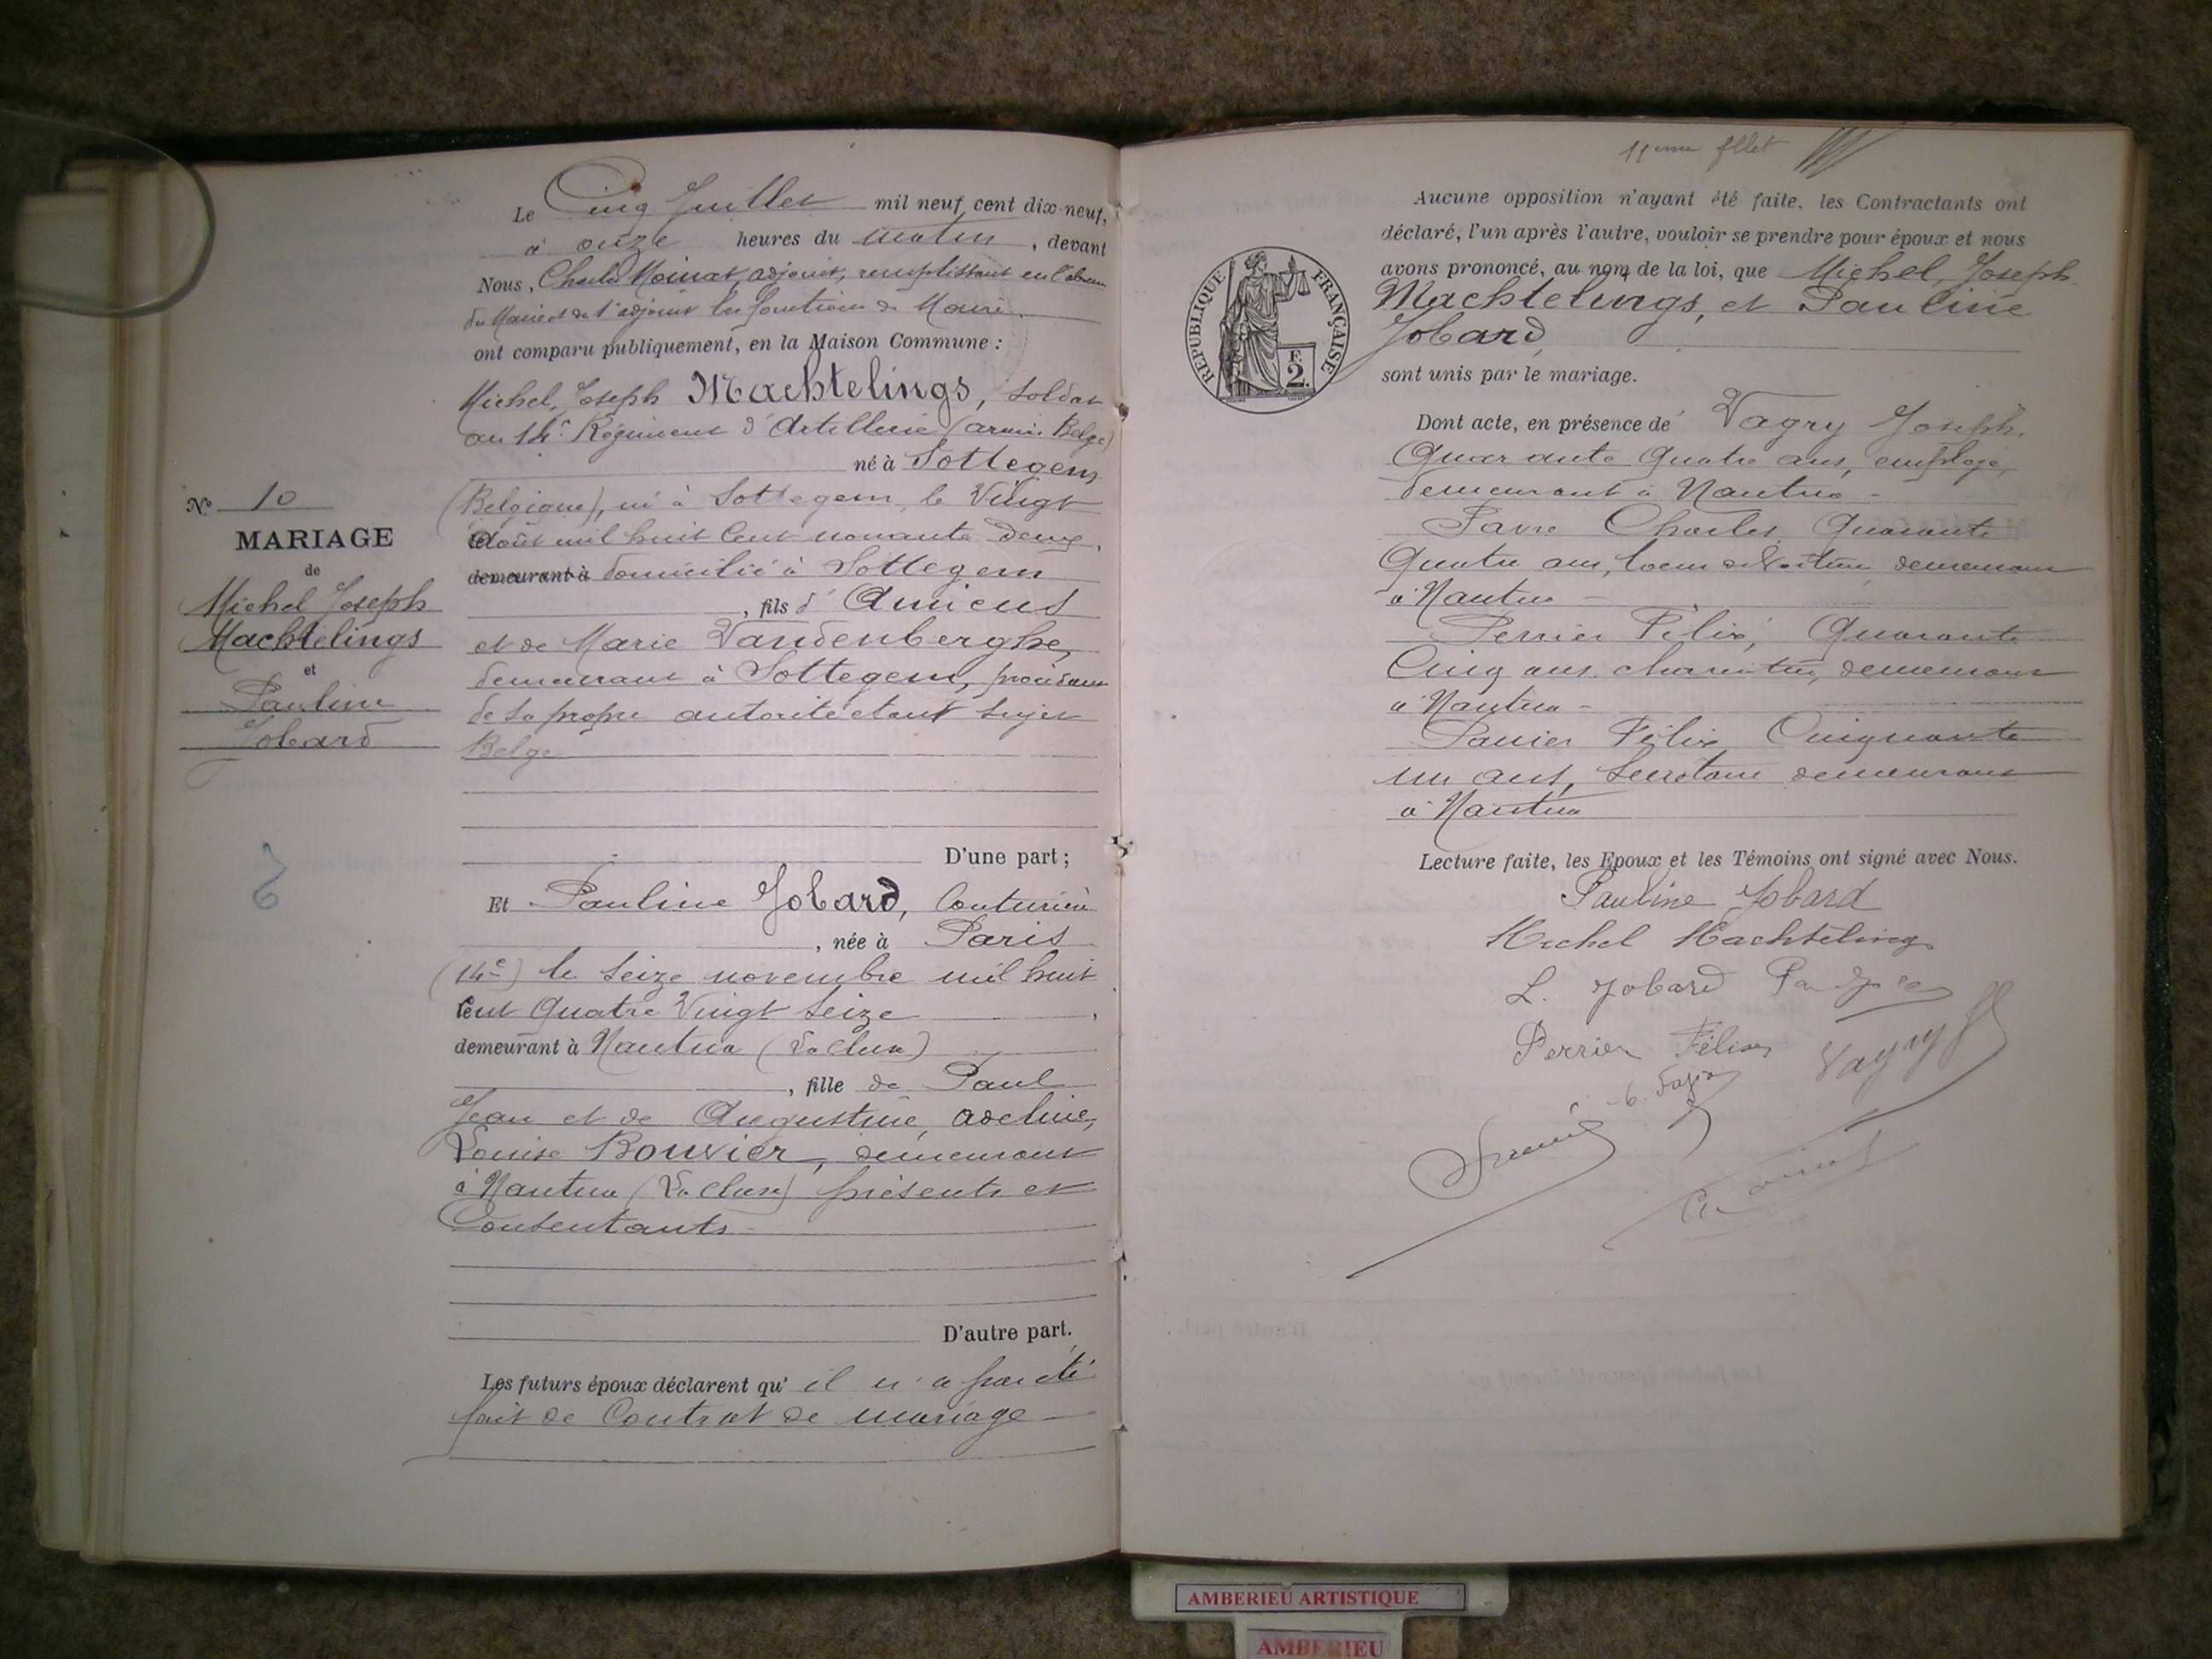 Le Cinq Juillet mil neuf cent dix-neuf,
à onze heures du matin, devant
Nous, Charles Moinat, adjoint, remplissant en l'absence
du Maire et de l'adjoint les fonctions de Maire
ont comparu publiquement, en la Maison Commune :
Michel, Joseph Machtelings, soldat
au 14e Régiment d'Artillerie (armée Belge)
né à Sottegem
(Belgique), né à Sottegem, le Vingt
Août mil huit Cent nonante deux,
demeurant à domicilié à Sottegem
, fils d' Amicus
et de Marie Vandenberghe,
demeurant à Sottegem, procédant
de sa propre autorité étant sujet
Belge
D'une part ;
Et Pauline Jobard, Couturière
, née à Paris
(14e) le Seize novembre mil huit
Cent Quatre Vingt Seize,
demeurant à Nantua (La Cluse)
, fille de Paul
Jean et de Augustine, Adeline,
Louise Bouvier, demeurant
à Nantua (La Cluse) présents et
Consentants
D'autre part.
Les futurs époux déclarent qu'il n'a pas été
fait de Contrat de mariage
N° 10
MARIAGE
de
Michel Joseph
Machtelings
et
Pauline
Jobard
11eme fllet
Aucune opposition n'ayant été faite, les Contractants ont
déclaré, l'un après l'autre, vouloir se prendre pour époux et nous
avons prononcé, au nom de la loi, que Michel, Joseph
Machtelings, et Pauline
Jobard,
sont unis par le mariage.
RÉPUBLIQUE FRANÇAISE
F.
2.
Dont acte, en présence de Vagry Joseph,
Quarante Quatre ans, employé,
demeurant à Nantua -
Favre Charles Quarante
Quatre ans, demeurant
à Nantua -
Perrier Félix, Quarante
Cinq ans, demeurant
à Nantua -
Panier Félix, Cinquante
un ans, Secrétaire demeurant
à Nantua
Lecture faite, les Epoux et les Témoins ont signé avec Nous.
Pauline Jobard
Michel Machtelings
L. Jobard
Perrier Félix
Vagry J